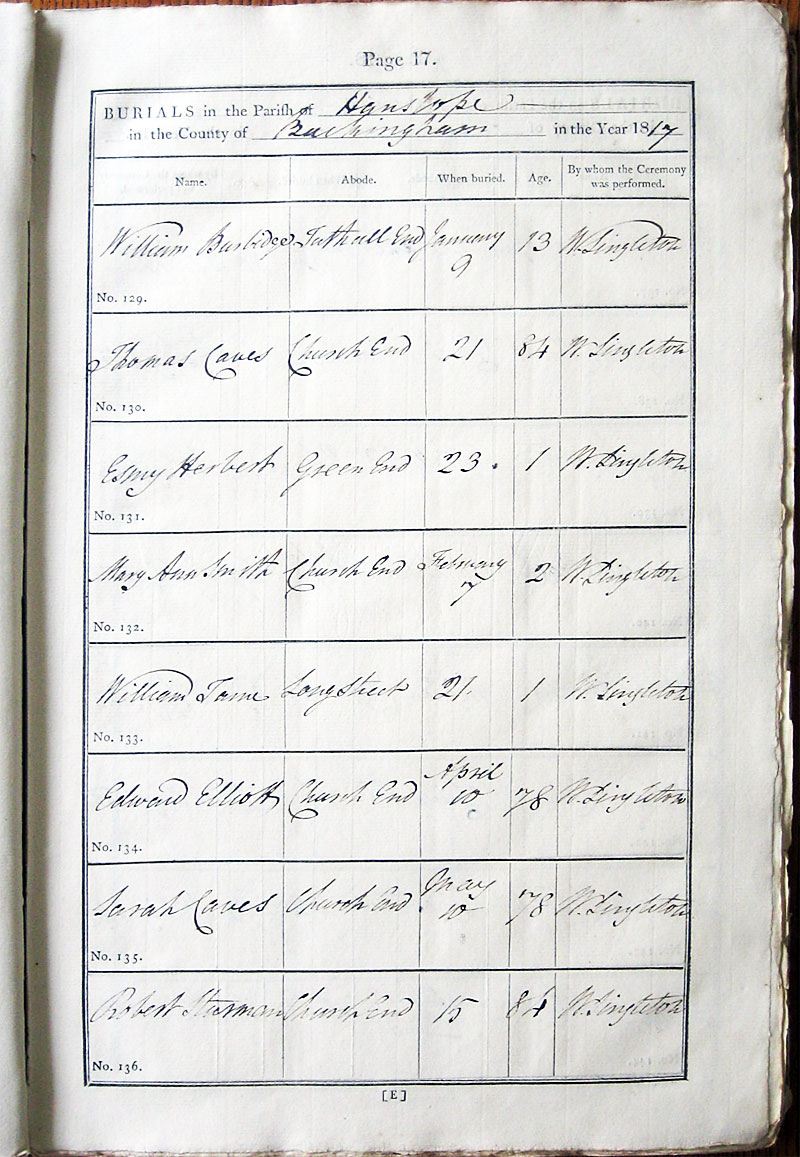 Page 17.
BURIALS in the Parish of Hanslope
in the County of Buckingham in the Year 1817
Name. Abode. When buried. Age. By whom the Ceremony was performed.
William Burbidge Tathall End January 9 13 W. Singleton
No. 129.
Thomas Caves Church End 21 84 W. Singleton
No. 130.
Esmy Herbert Green End 23. 1 W. Singleton
No. 131.
Mary Ann Smith Church End February 7 2 W. Singleton
No. 132.
William Tame Long Street 21. 1 W. Singleton
No. 133.
Edward Elliott Church End April 10 78 W. Singleton
No. 134.
Sarah Caves Church End May 10 78 W. Singleton
No. 135.
Robert Sturman Church End 15 84 W. Singleton
No. 136.
[E]